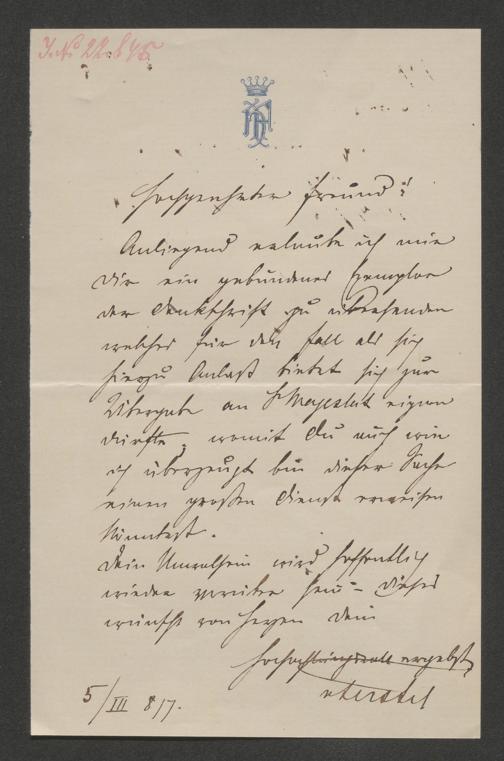 J.No 22.845
Hochgeehrter Freund!
Anliegend erlaube ich mir
Dir ein gebundenes Exemplar
der Denkschrift zu übersenden
welches für den Fall als sich
hiezu Anlaß bietet sich zur
Übergabe an Sr Majestät eignen
dürfte, womit Du auch wie
ich überzeugt bin dieser Sache
einen großen Dienst erweisen
könntest.
Dein Unwohlsein wird hoffentlich
wieder vorüber sein – dieses
wünscht von Herzen Dein
ergebst
5/III 87.